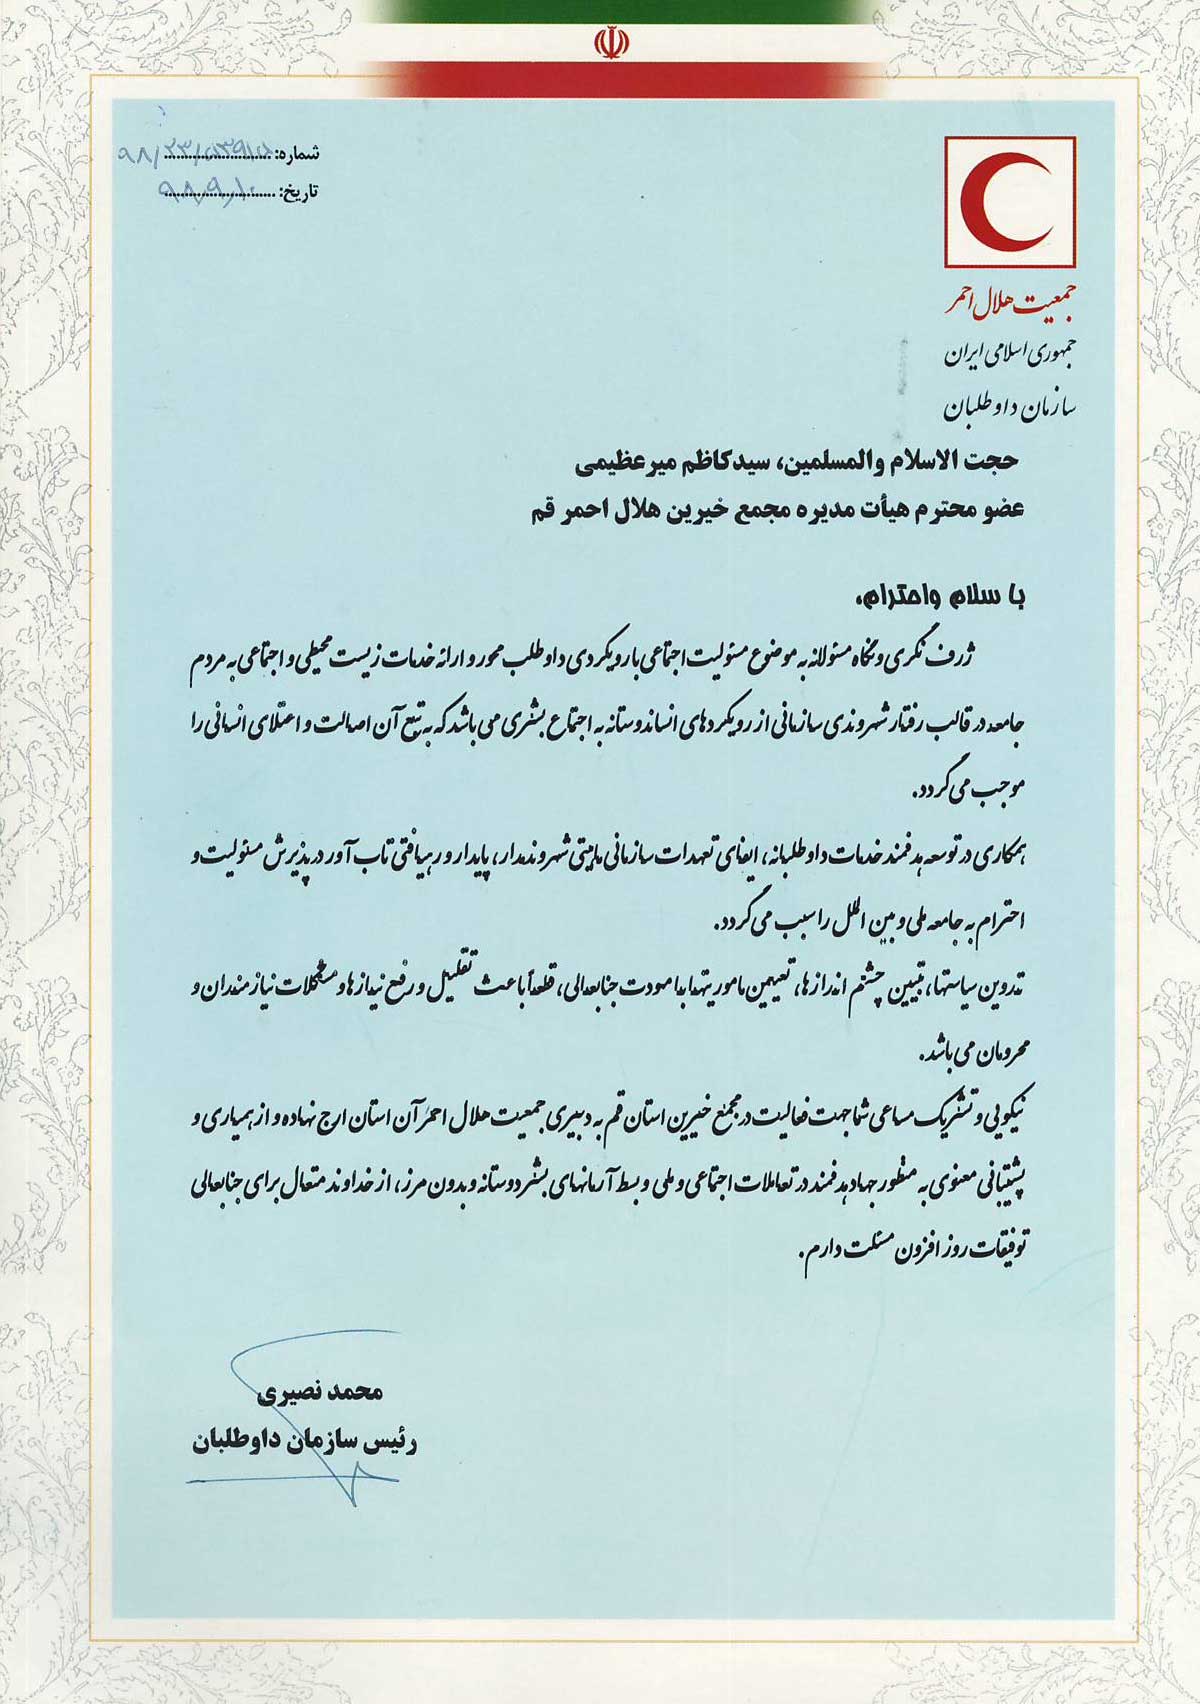 شماره: ۹۸/۲۳/
تاریخ: ۹۸/۹/۱۰
جمعیت هلال احمر
جمهوری اسلامی ایران
سازمان داوطلبان
حجت الاسلام والمسلمین، سیدکاظم میرعظیمی
عضو محترم هیأت مدیره مجمع خیرین هلال احمر قم
با سلام واحترام،
ژرف نگری و نگاه مسئولانه به موضوع مسئولیت اجتماعی با رویکردی داوطلب محور و ارائه خدمات زیست محیطی و اجتماعی به مردم
جامعه در قالب رفتار شهروندی سازمانی از رویکردهای انساندوستانه به اجتماع بشری می باشد که به تبع آن اصالت و اعتلای انسانی را
موجب می گردد.
همکاری در توسعه هدفمند خدمات داوطلبانه، ایفای تعهدات سازمانی ماهیتی شهروندمدار، پایدار و رهیافتی تاب آور در پذیرش مسئولیت و
احترام به جامعه ملی و بین الملل را سبب می گردد.
تدوین سیاستها، تبیین چشم اندازها، تعیین ماموریتها با مودت جنابعالی، قطعاً باعث تقلیل و رفع نیازها و مشکلات نیازمندران و
محرومان می باشد.
نیکویی و تشریک مساعی شما جهت فعالیت در مجمع خیرین استان قم به دبیری جمعیت هلال احمر آن استان ارج نهاده و از همیاری و
پشتیبانی معنوی به منظور جهاد هدفمند در تعاملات اجتماعی و ملی و بسط آرمانهای بشردوستانه و بدون مرز، از خداوند متعال برای جنابعالی
توفیقات روز افزون مسئلت دارم.
محمد نصیری
رئیس سازمان داوطلبان